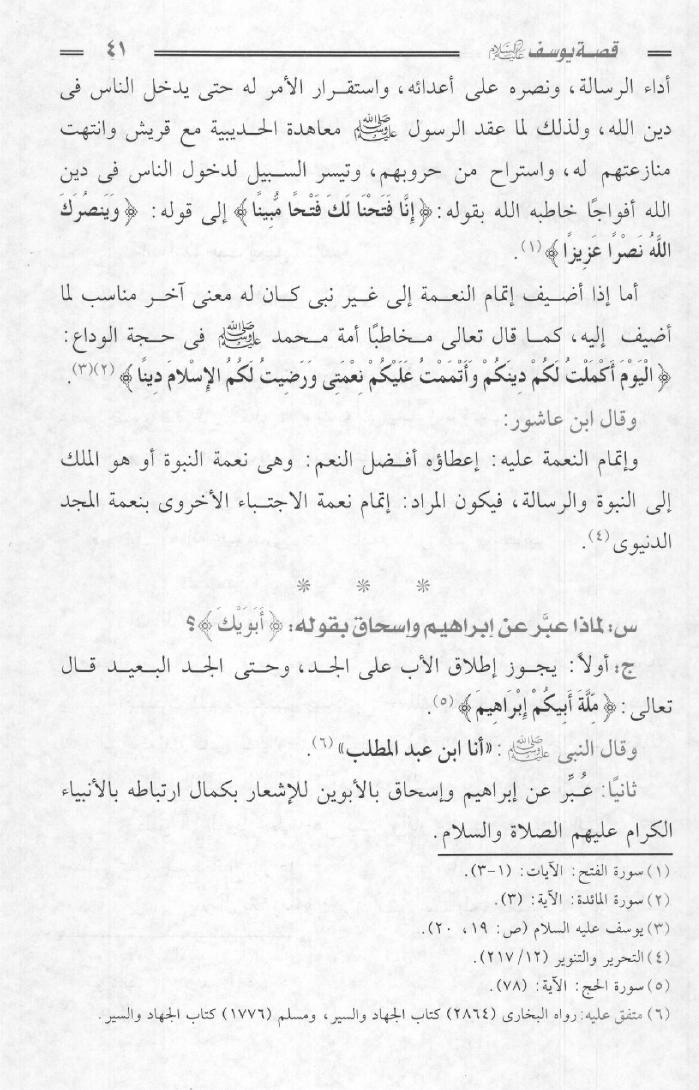 قصة يوسف عليه السلام ٤١
أداء الرسالة، ونصره على أعدائه، واستقرار الأمر له حتى يدخل الناس فى
دين الله، ولذلك لما عقد الرسول ﷺ معاهدة الحديبية مع قريش وانتهت
منازعتهم له، واستراح من حروبهم، وتيسر السبيل لدخول الناس فى دين
الله أفواجًا خاطبه الله بقوله: ﴿إِنَّا فَتَحْنَا لَكَ فَتْحًا مُّبِينًا﴾ إلى قوله: ﴿وَيَنصُرَكَ
اللَّهُ نَصْرًا عَزِيزًا﴾(١).
أما إذا أضيف إتمام النعمة إلى غير نبى كان له معنى آخر مناسب لما
أضيف إليه، كما قال تعالى مخاطبًا أمة محمد ﷺ فى حجة الوداع:
﴿الْيَوْمَ أَكْمَلْتُ لَكُمْ دِينَكُمْ وَأَتْمَمْتُ عَلَيْكُمْ نِعْمَتِى وَرَضِيتُ لَكُمُ الإِسْلامَ دِينًا﴾(٢)(٣).
وقال ابن عاشور:
وإتمام النعمة عليه: إعطاؤه أفضل النعم: وهى نعمة النبوة أو هو الملك
إلى النبوة والرسالة، فيكون المراد: إتمام نعمة الاجتباء الأخروى بنعمة المجد
الدنيوى(٤).
* * *
س: لماذا عبَّر عن إبراهيم وإسحاق بقوله: ﴿أَبَوَيْكَ﴾؟
ج: أولاً: يجوز إطلاق الأب على الجد، وحتى الجد البعيد قال
تعالى: ﴿مِّلَّةَ أَبِيكُمْ إِبْرَاهِيمَ﴾(٥).
وقال النبى ﷺ: «أنا ابن عبد المطلب»(٦).
ثانيًا: عُبِّر عن إبراهيم وإسحاق بالأبوين للإشعار بكمال ارتباطه بالأنبياء
الكرام عليهم الصلاة والسلام.
(١) سورة الفتح: الآيات: (١-٣).
(٢) سورة المائدة: الآية: (٣).
(٣) يوسف عليه السلام (ص: ١٩، ٢٠).
(٤) التحرير والتنوير (٢١٧/١٢).
(٥) سورة الحج: الآية: (٧٨).
(٦) متفق عليه: رواه البخارى (٢٨٦٤) كتاب الجهاد والسير، ومسلم (١٧٧٦) كتاب الجهاد والسير.